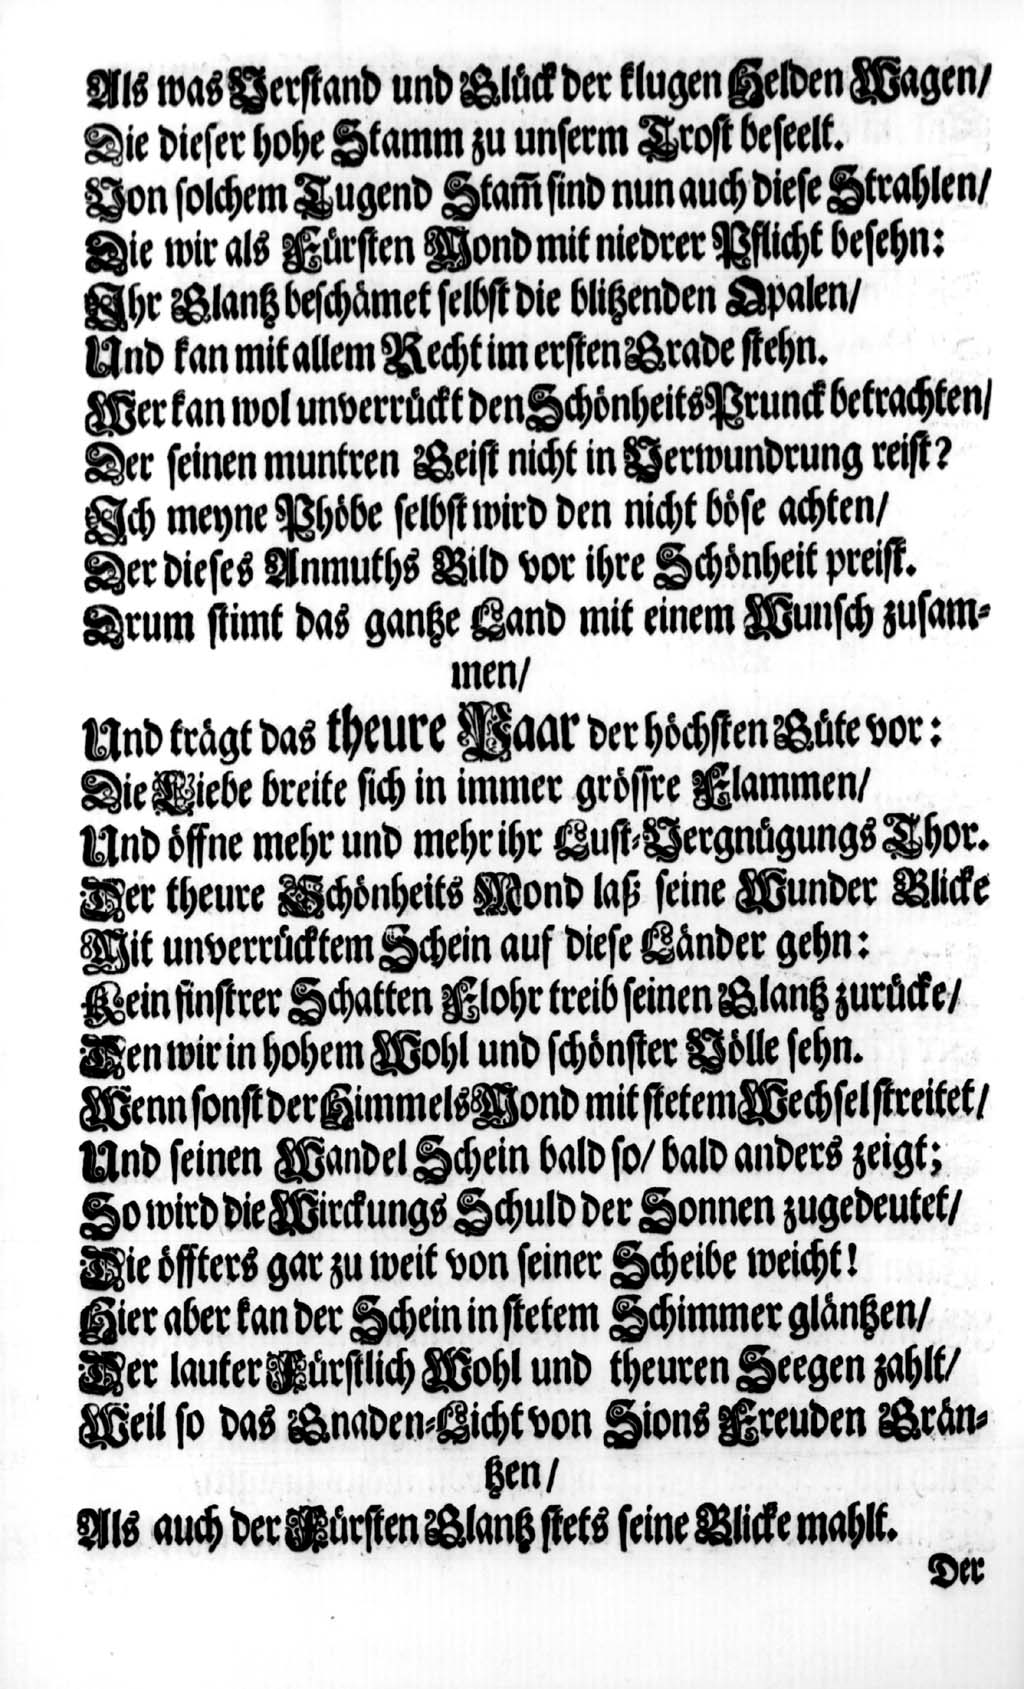 Als was Verstand und Glück der klugen Helden Wagen/
Die dieser hohe Stamm zu unserm Trost beseelt.
Von solchem Tugend Stam̄ sind nun auch diese Strahlen/
Die wir als Fürsten Mond mit niedrer Pflicht besehn:
Ihr Glantz beschämet selbst die blitzenden Opalen/
Und kan mit allem Recht im ersten Grade stehn.
Wer kan wol unverrückt den Schönheits Prunck betrachten/
Der seinen muntren Geist nicht in Verwundrung reist?
Ich meyne Phöbe selbst wird den nicht böse achten/
Der dieses Anmuths Bild vor ihre Schönheit preist.
Drum stimt das gantze Land mit einem Wunsch zusam-
men/
Und trägt das theure Paar der höchsten Güte vor:
Die Liebe breite sich in immer grössre Flammen/
Und öffne mehr und mehr ihr Lust-Vergnügungs Thor.
Der theure Schönheits Mond laß seine Wunder Blicke
Mit unverrücktem Schein auf diese Länder gehn:
Kein finstrer Schatten Flohr treib seinen Glantz zurücke/
Den wir in hohem Wohl und schönster Völle sehn.
Wenn sonst der Himmels Mond mit stetem Wechsel streitet/
Und seinen Wandel Schein bald so/ bald anders zeigt;
So wird die Wirckungs Schuld der Sonnen zugedeutet/
Die öffters gar zu weit von seiner Scheibe weicht!
Hier aber kan der Schein in stetem Schimmer gläntzen/
Der lauter Fürstlich Wohl und theuren Seegen zahlt/
Weil so das Gnaden-Licht von Sions Freuden Grän-
tzen/
Als auch der Fürsten Glantz stets seine Blicke mahlt.
Der